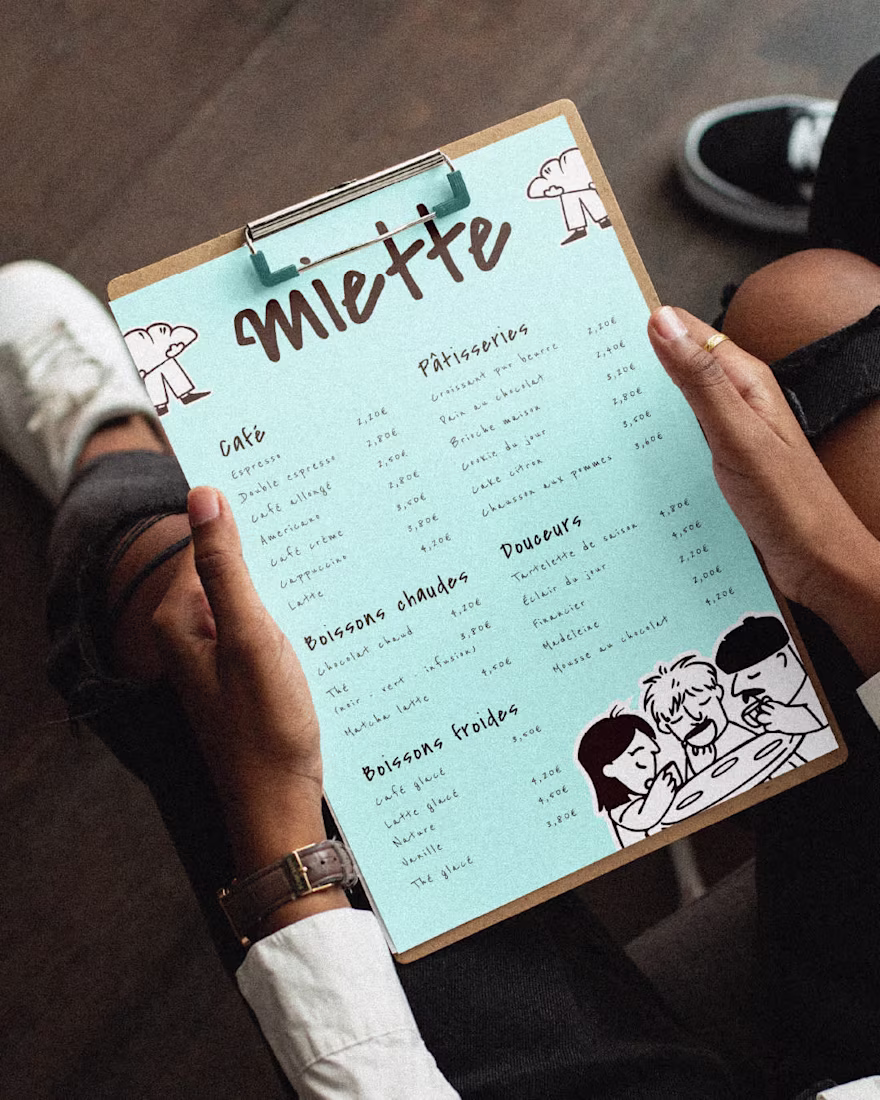 Miette
Café
Espresso 2,20€
Double espresso 2,80€
Café allongé 2,50€
Americano 2,80€
Café crème 3,50€
Cappuccino 3,80€
Latte 4,20€
Boissons chaudes
Chocolat chaud 4,20€
Thé 3,80€
(noir · vert · infusion)
Matcha latte 4,50€
Boissons froides
Café glacé 3,50€
Latte glacé
Nature 4,20€
Vanille 4,50€
Thé glacé 3,80€
Pâtisseries
Croissant pur beurre 2,20€
Pain au chocolat 2,40€
Brioche maison 3,20€
Cookie du jour 2,80€
Cake citron 3,50€
Chausson aux pommes 3,60€
Douceurs
Tartelette de saison 4,80€
Éclair du jour 4,50€
Financier 2,20€
Madeleine 2,00€
Mousse au chocolat 4,20€